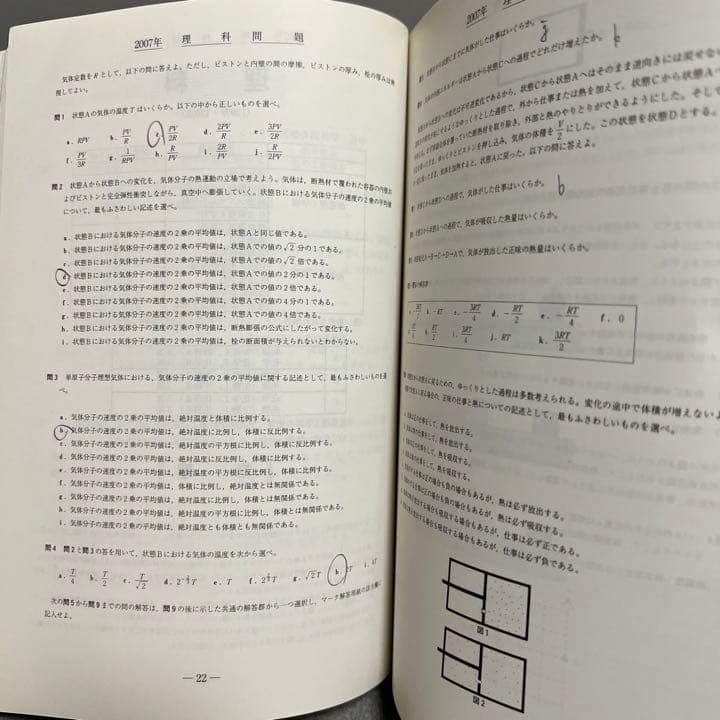 2007年 理 科 問 題
気体定数をRとして，以下の問に答えよ。ただし，ピストンと内壁の間の摩擦，ピストンの厚み，栓の厚みは無
視してよい。
問1 状態Aの気体の温度Tはいくらか。以下の中から正しいものを選べ。
a. RPV b. PV/R c. PV/2R d. 2PV/R e. 3PV/2R
f. PV/3R g. 1/RPV h. R/PV i. 2R/PV j. R/2PV
問2 状態Aから状態Bへの変化を，気体分子の熱運動の立場で考えよう。気体は，断熱材で覆われた容器の内壁お
よびピストンと完全弾性衝突しながら，真空中へ膨張していく。状態Bにおける気体分子の速度の2乗の平均値
について，最もふさわしい記述を選べ。
a. 状態Bにおける気体分子の速度の2乗の平均値は，状態Aと同じ値である。
b. 状態Bにおける気体分子の速度の2乗の平均値は，状態Aでの値の√2分の1である。
c. 状態Bにおける気体分子の速度の2乗の平均値は，状態Aでの値の√2倍である。
d. 状態Bにおける気体分子の速度の2乗の平均値は，状態Aでの値の2分の1である。
e. 状態Bにおける気体分子の速度の2乗の平均値は，状態Aでの値の2倍である。
f. 状態Bにおける気体分子の速度の2乗の平均値は，状態Aでの値の4分の1である。
g. 状態Bにおける気体分子の速度の2乗の平均値は，状態Aでの値の4倍である。
h. 状態Bにおける気体分子の速度の2乗の平均値は，断熱膨張の公式にしたがって変化する。
i. 状態Bにおける気体分子の速度の2乗の平均値は，栓の断面積が与えられないとわからない。
問3 単原子分子理想気体における，気体分子の速度の2乗の平均値に関する記述として，最もふさわしいものを選
べ。
a. 気体分子の速度の2乗の平均値は，絶対温度と体積に比例する。
b. 気体分子の速度の2乗の平均値は，絶対温度に比例し，体積に反比例する。
c. 気体分子の速度の2乗の平均値は，絶対温度の平方根に比例し，体積に反比例する。
d. 気体分子の速度の2乗の平均値は，絶対温度に反比例し，体積に比例する。
e. 気体分子の速度の2乗の平均値は，絶対温度の平方根に反比例し，体積に比例する。
f. 気体分子の速度の2乗の平均値は，体積に比例し，絶対温度とは無関係である。
g. 気体分子の速度の2乗の平均値は，絶対温度に比例し，体積とは無関係である。
h. 気体分子の速度の2乗の平均値は，絶対温度の平方根に比例し，体積とは無関係である。
i. 気体分子の速度の2乗の平均値は，絶対温度とも体積とも無関係である。
問4 問2と問3の答を用いて，状態Bにおける気体の温度を次から選べ。
a. T/4 b. T/2 c. T/√2 e. T g. √2T h. 2T i. 4T
次の問5から問9までの問の解答は，問9の後に示した共通の解答群から一つ選択し，マーク解答用紙の該当欄に
記入せよ。
— 22 —
2007年 理
仕事はいくらか。 j
状態Cへの過程でどれだけ増えたか。 k
不可逆変化であるから，状態Cから状態Aへはそのまま逆向きには戻せな
ゆっくりとした過程で，外から仕事または熱を加えて，状態Cから状態Aへ
断熱材を取り除き，外部と熱のやりとりができるようにした。そして
ゆっくりとピストンを押し込み，気体の体積をV/2にした。この状態を状態Dとする。
気体を加熱すると，状態Aに戻った。以下の問に答えよ。
過程で，気体がした仕事はいくらか。 b
過程で，気体が吸収した熱量はいくらか。
気体が放出した正味の熱量はいくらか。
b. −RT c. −3RT/4 d. −RT/2 e. −RT/4 f. 0
i. 3RT/4 j. RT k. 3RT/2
ゆっくりとした過程は多数考えられる。変化の途中で体積が増えない
正味の仕事と熱についての記述として，最もふさわしいものを選べ。
仕事をして，熱を放出する。
仕事をして，熱を吸収する。
負の場合もあるが，熱は必ず放出する。
負の場合もあるが，熱は必ず吸収する。
吸収する場合もあるが，仕事は必ず正である。
吸収する場合もあるが，仕事は必ず負である。
図1
図2